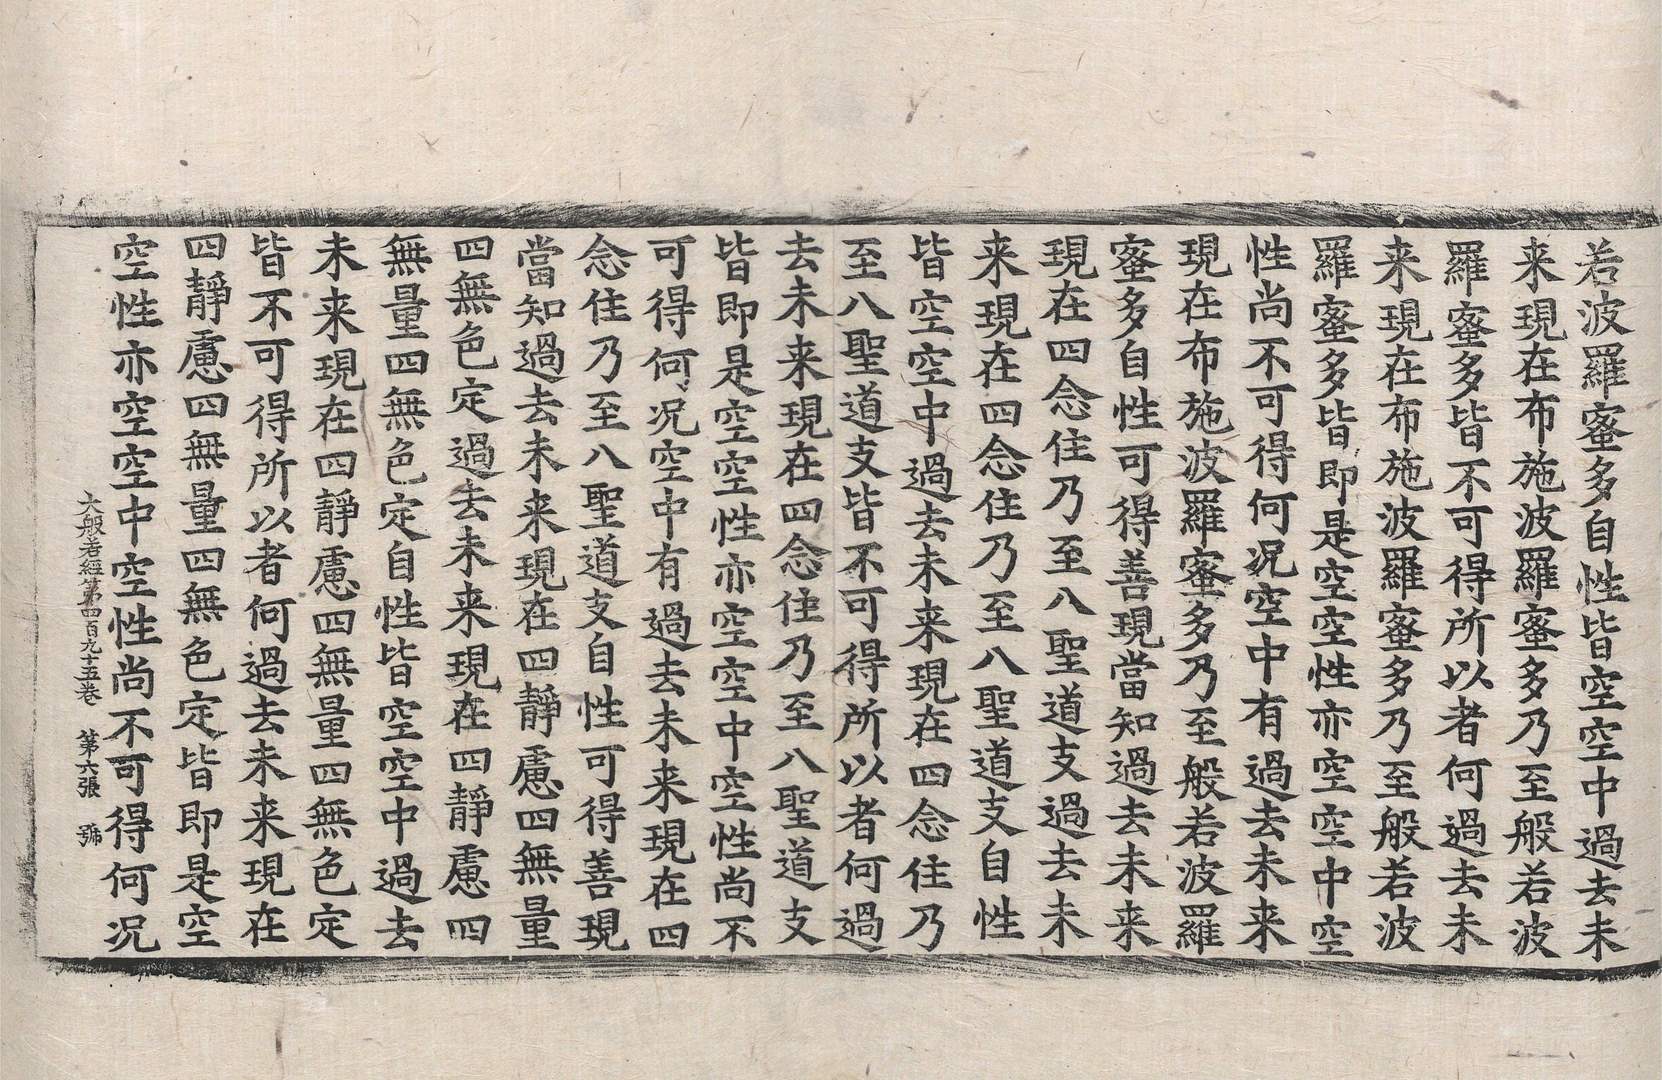 若波羅蜜多自性皆空空中過去未
来現在布施波羅蜜多乃至般若波
羅蜜多皆不可得所以者何過去未
来現在布施波羅蜜多乃至般若波
羅蜜多皆即是空空性亦空空中空
性尚不可得何況空中有過去未来
現在布施波羅蜜多乃至般若波羅
蜜多自性可得善現當知過去未来
現在四念住乃至八聖道支過去未
来現在四念住乃至八聖道支自性
皆空空中過去未来現在四念住乃
至八聖道支皆不可得所以者何過
去未来現在四念住乃至八聖道支
皆即是空空性亦空空中空性尚不
可得何況空中有過去未来現在四
念住乃至八聖道支自性可得善現
當知過去未来現在四靜慮四無量
四無色定過去未来現在四靜慮四
無量四無色定自性皆空空中過去
未来現在四靜慮四無量四無色定
皆不可得所以者何過去未来現在
四靜慮四無量四無色定皆即是空
空性亦空空中空性尚不可得何況
大般若經第四百九十五卷 第六張 號